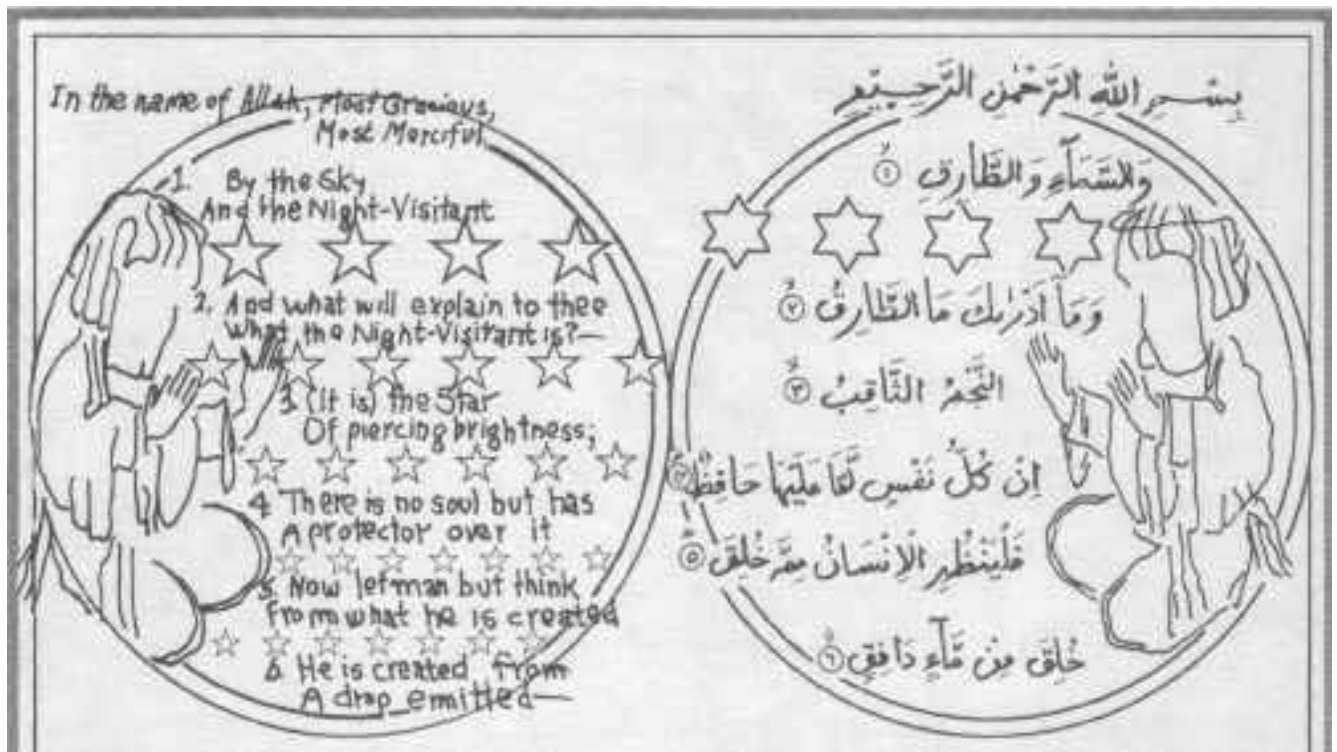 In the name of Allah, Most Gracious,
Most Merciful.
1. By the Sky
And the Night-Visitant
2. And what will explain to thee
What the Night-Visitant is?—
3. (It is) the Star
Of piercing brightness;
4. There is no soul but has
A protector over it
5. Now let man but think
From what he is created
6. He is created from
A drop emitted—
بِسْمِ اللهِ الرَّحْمٰنِ الرَّحِيْمِ
وَالسَّمَآءِ وَالطَّارِقِ ١
وَمَآ اَدْرٰىكَ مَا الطَّارِقُ ٢
النَّجْمُ الثَّاقِبُ ٣
اِنْ كُلُّ نَفْسٍ لَّمَّا عَلَيْهَا حَافِظٌ
فَلْيَنْظُرِ الْاِنْسَانُ مِمَّ خُلِقَ ٥
خُلِقَ مِنْ مَّآءٍ دَافِقٍ ٦